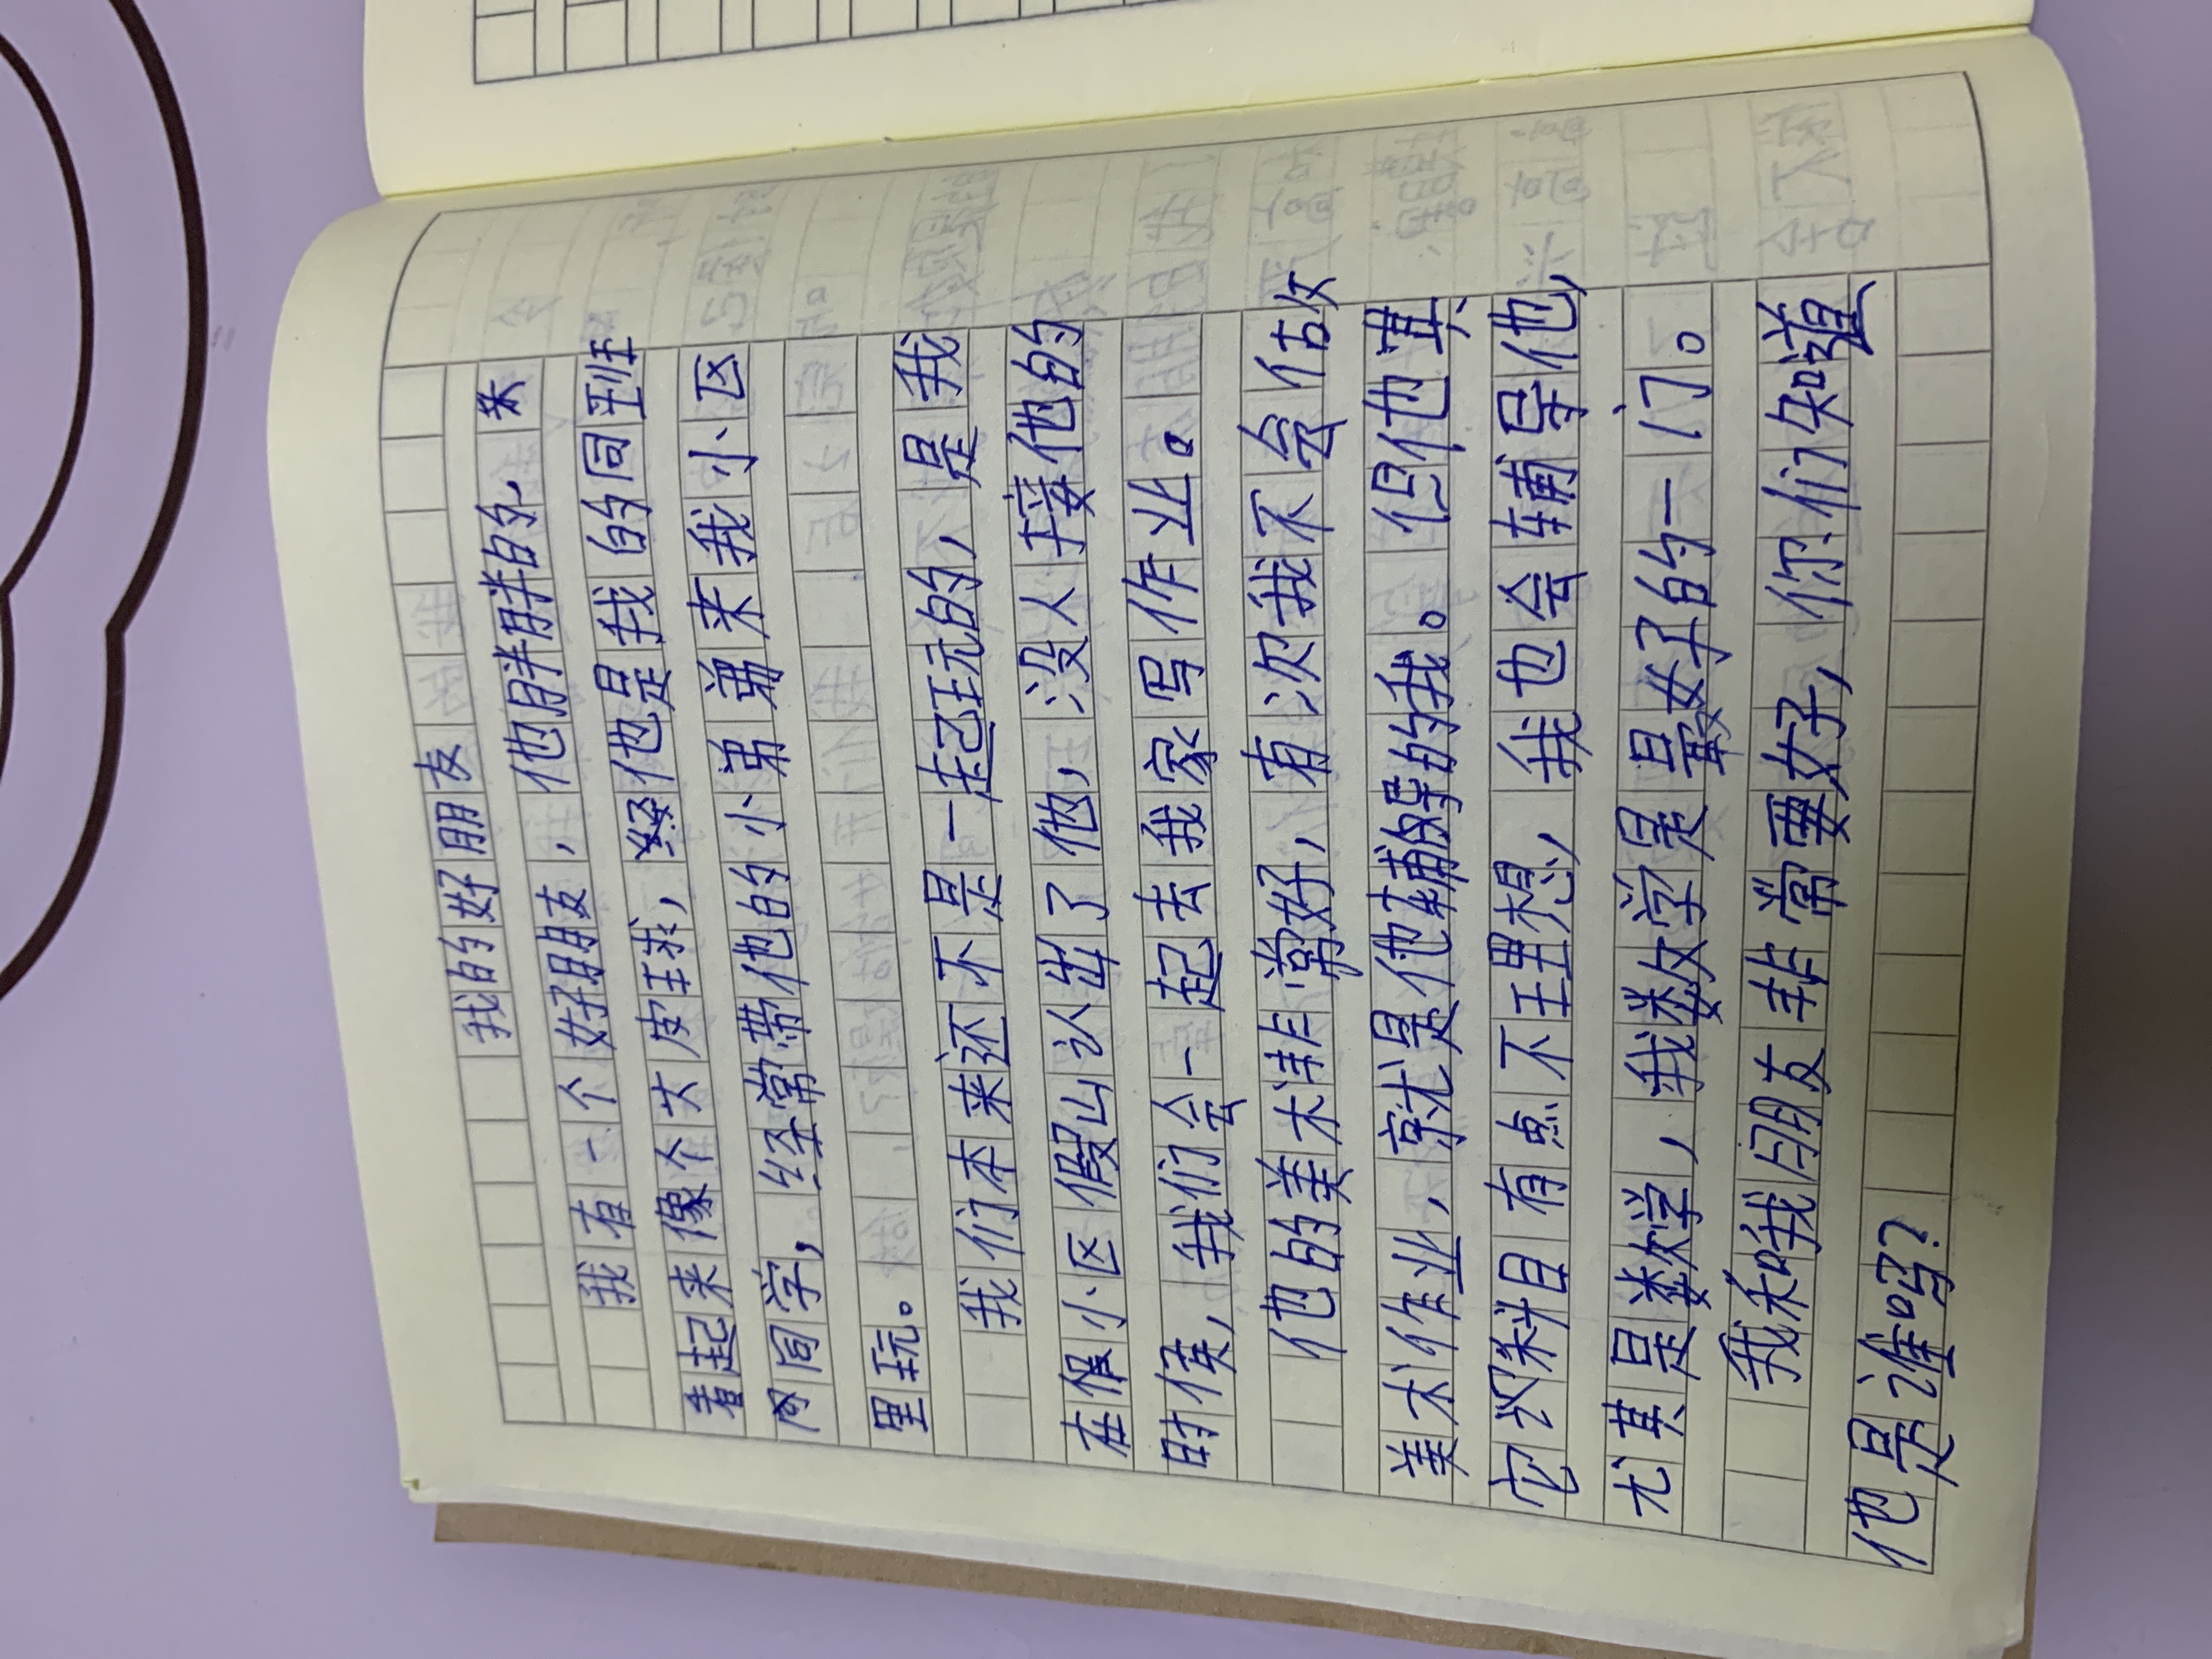 我的好朋友
我有一个好朋友，他胖胖的，来
着起来像个大皮球，他是我的同班
同学，经常带他的小弟弟来我小区
里玩。
我们本来还不是一起玩的，是我
在小区假山认出了他，没人接他的
时候，我们会一起去我家写作业。
他的美术非常好，有次我不会做
美术作业，就是他辅导的我。但他其
它科目有点不理想，我也会辅导他，
尤其是数学，我数学是最好的一门。
我和我朋友非常要好，你们知道
他是谁吗？